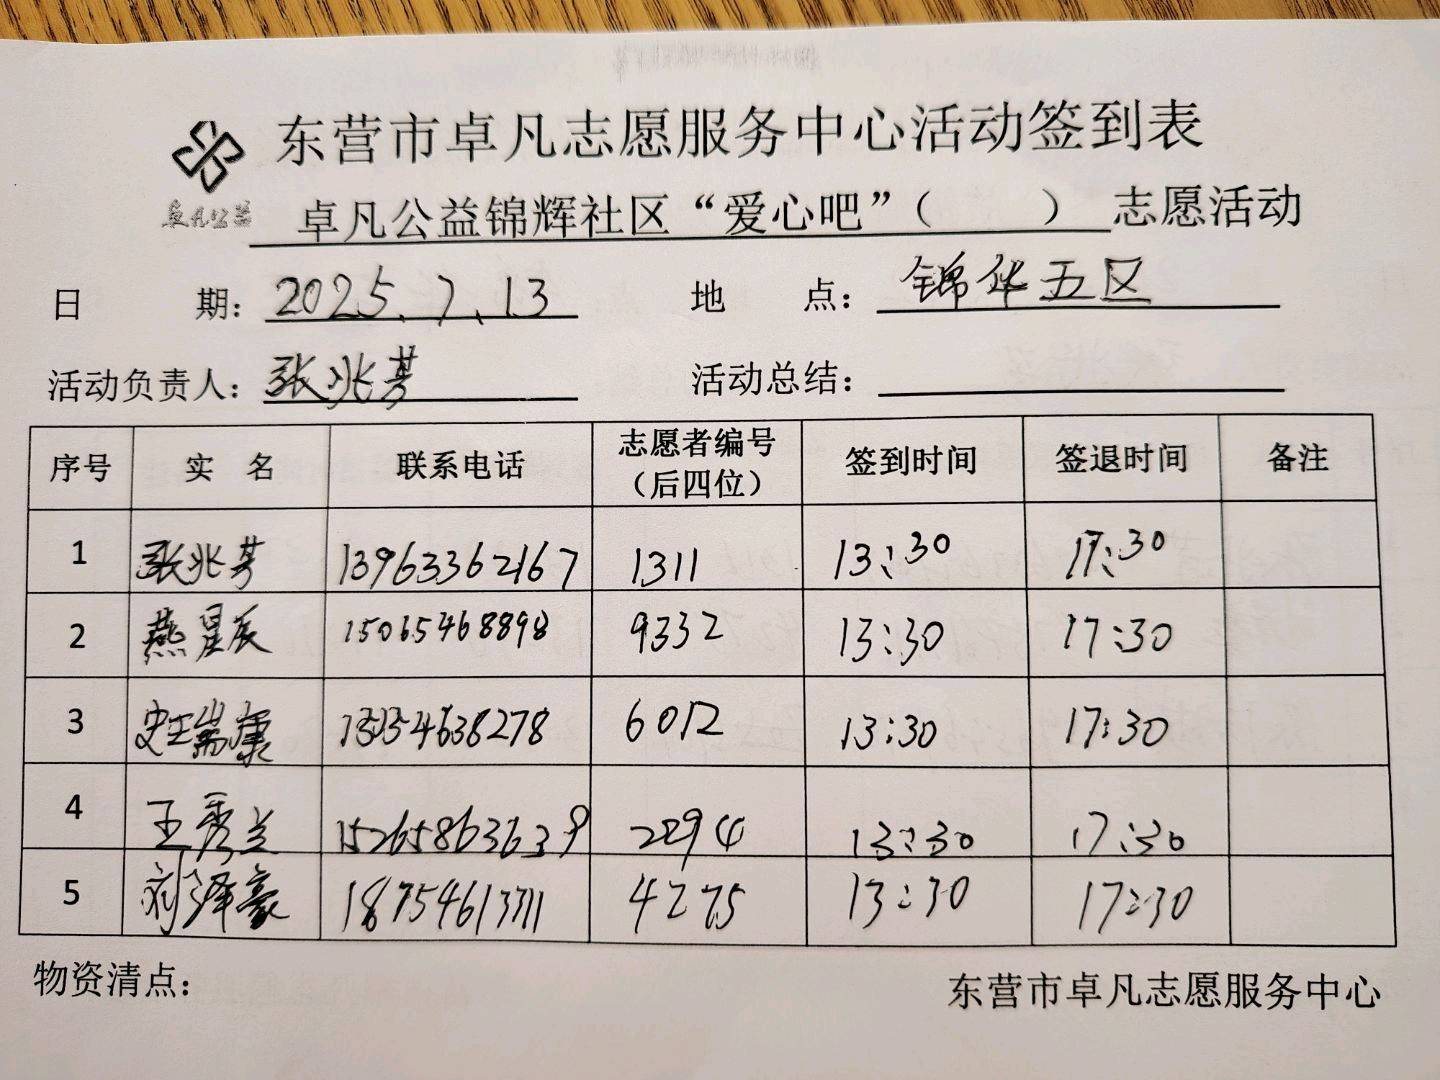 东营市卓凡志愿服务中心活动签到表
卓凡公益
卓凡公益锦辉社区“爱心吧”（ ）志愿活动
日 期：2025.7.13 地 点：锦华五区
活动负责人：张兆芳 活动总结：
序号 实 名 联系电话 志愿者编号（后四位） 签到时间 签退时间 备注
1 张兆芳 13963362167 1311 13:30 17:30
2 燕星辰 15065468898 9332 13:30 17:30
3 史王瑞康 6012 13:30 17:30
4 王秀兰 15265863639 2294 13:30 17:30
5 刘泽豪 4275 13:30 17:30
物资清点：
东营市卓凡志愿服务中心